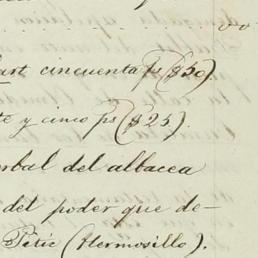 cincuenta ps ($50).
y cinco ps ($25).
verbal del albacea
del poder que de-
Petic (Hermosillo).